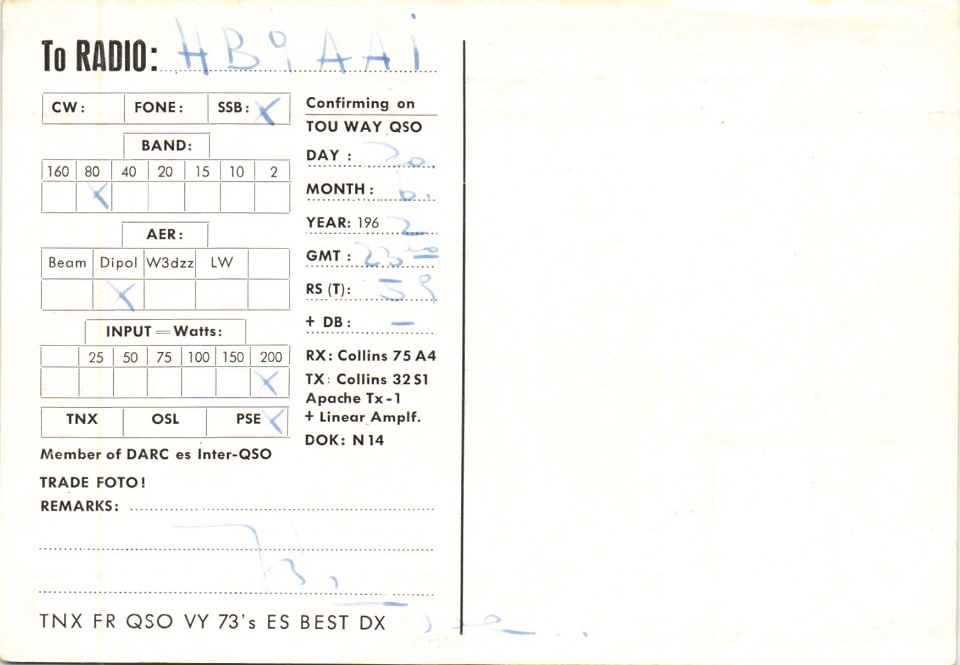 To RADIO: HB9AAI
CW: FONE: SSB: X
BAND:
160 80 40 20 15 10 2
X
AER:
Beam Dipol W3dzz LW
X
INPUT = Watts:
25 50 75 100 150 200
X
TNX OSL PSE X
Member of DARC es Inter-QSO
TRADE FOTO!
REMARKS:
Confirming on
TOU WAY QSO
DAY : 20.
MONTH : 6.
YEAR: 196 2
GMT : 23
RS (T): 59
+ DB: –
RX: Collins 75 A4
TX: Collins 32 S1
Apache Tx-1
+ Linear Amplf.
DOK: N 14
TNX FR QSO VY 73's ES BEST DX